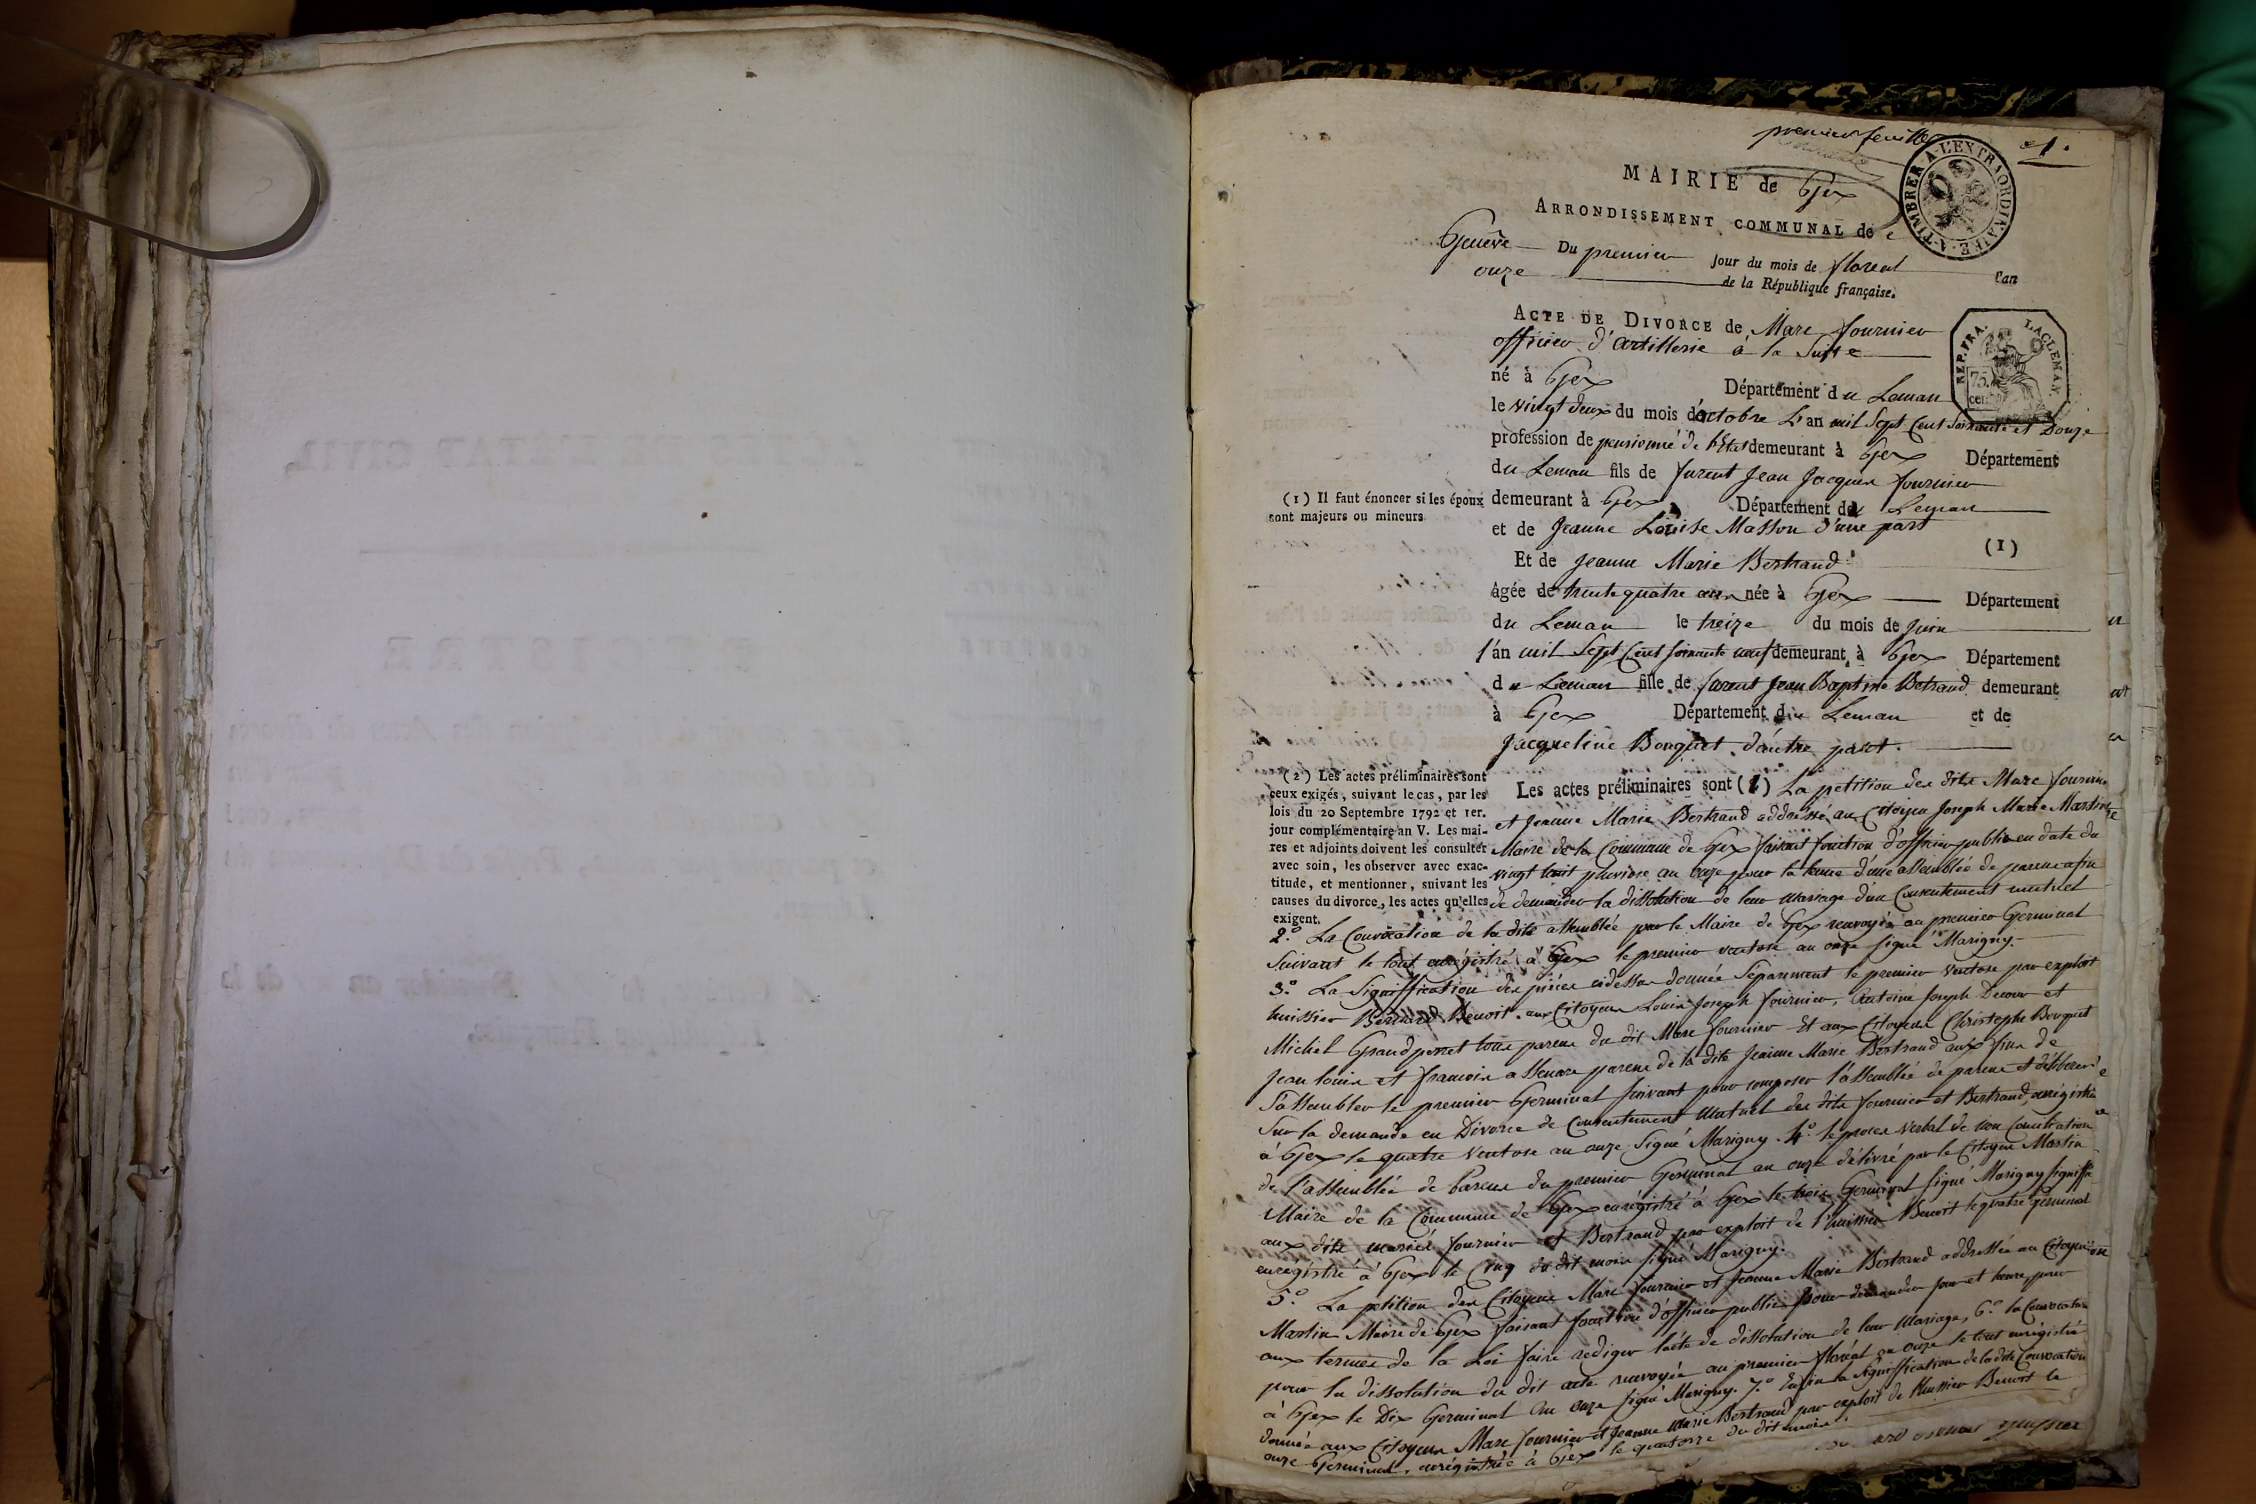 premier feuille
1.
A TIMBRER A L'EXTRAORDINAIRE
MAIRIE de Gex
ARRONDISSEMENT COMMUNAL de
Genève Du premier jour du mois de floreal l'an
onze de la République française.
REP. FRA.
75.
cen
ACTE DE DIVORCE de Marc fournier
officier d'artillerie à la Suite
né à Gex Département du Leman
le vingt deux du mois d'octobre L'an mil Sept Cent Soixante et Douze
profession de pensionné de l'Etat demeurant à Gex Département
du Leman fils de furent Jean Jacques fournier
(1) Il faut énoncer si les époux
sont majeurs ou mineurs
demeurant à Gex Département du Leman
et de Jeanne Louise Masson d'une part
(1)
Et de Jeanne Marie Bertrand
âgée de trente quatre ans née à Gex Département
du Leman le treize du mois de juin
l'an mil Sept Cent soixante neuf demeurant à Gex Département
du Leman fille de furent Jean Baptiste Betrand demeurant
à Gex Département du Leman et de
Jacqueline Bouquet d'autre part.
(2) Les actes préliminaires sont
ceux exigés, suivant le cas, par les
lois du 20 Septembre 1792 et 1er.
jour complémentaire an V. Les mai-
res et adjoints doivent les consulter
avec soin, les observer avec exac-
titude, et mentionner, suivant les
causes du divorce, les actes qu'elles
exigent.
Les actes préliminaires sont (2) La petition des dits Marc fournier
et Jeanne Marie Bertrand addressée au Citoyen Joseph Marie Martin
Maire de la Commune de Gex faisant fonction d'officier public en date du
vingt huit pluviose an onze pour la tenue d'une assemblée de parens afin
de demander la dissolution de leur mariage d'un Consentement mutuel
2.° La Convocation de la dite assemblée par le Maire de Gex renvoyée au premier Germinal
Suivant le tout enrégistré à Gex le premier ventose an onze signé Marigny.
3.° La Signiffication des pièces cidessus donnée Separement le premier Ventose par exploit
huissier Bernard Benoit aux Citoyens Louis Joseph fournier, Antoine Joseph Decour et
Michel Grandperret tous parens du dit Marc fournier Et aux Citoyens Christophe Bouquet
Jean louis et francois parens de la dite Jeanne Marie Bertrand aux fins de
S'assembler le premier Germinal suivant pour composer l'assemblée de parens et déliberer
Sur la demande en Divorce de Consentement Mutuel des dits fournier et Bertrand, enrégistré
à Gex le quatre Ventose an onze Signé Marigny. 4.° le proces verbal de non Conciliation
de l'assemblée de Parens du premier Germinal an onze délivré par le Citoyen Martin
Maire de la Commune de Gex enrégistré à Gex le trois Germinal signé Marigny signiffié
aux dits mariés fournier et Bertrand par exploit de l'huissier Benoit le quatre germinal
enrégistré à Gex le Cinq du dit mois signé Marigny.
5.° La petition des Citoyens Marc fournier et Jeanne Marie Bertrand addressée au Citoyen
Martin Maire de Gex faisant fonction d'officier public pour demander jour et heure pour
aux termes de la Loi faire rediger l'acte de dissolution de leur Mariage, 6.° la Convocation
pour la dissolution du dit acte renvoyée au premier floréal an onze le tout enrégistré
à Gex le Dix Germinal an onze signé Marigny. 7.° Enfin la signiffication de la dite Convocation
donnée aux Citoyens Marc fournier et Jeanne Marie Bertrand par exploit de l'huissier Benoit le
onze Germinal. enrégistrée à Gex le quatorze du dit mois.